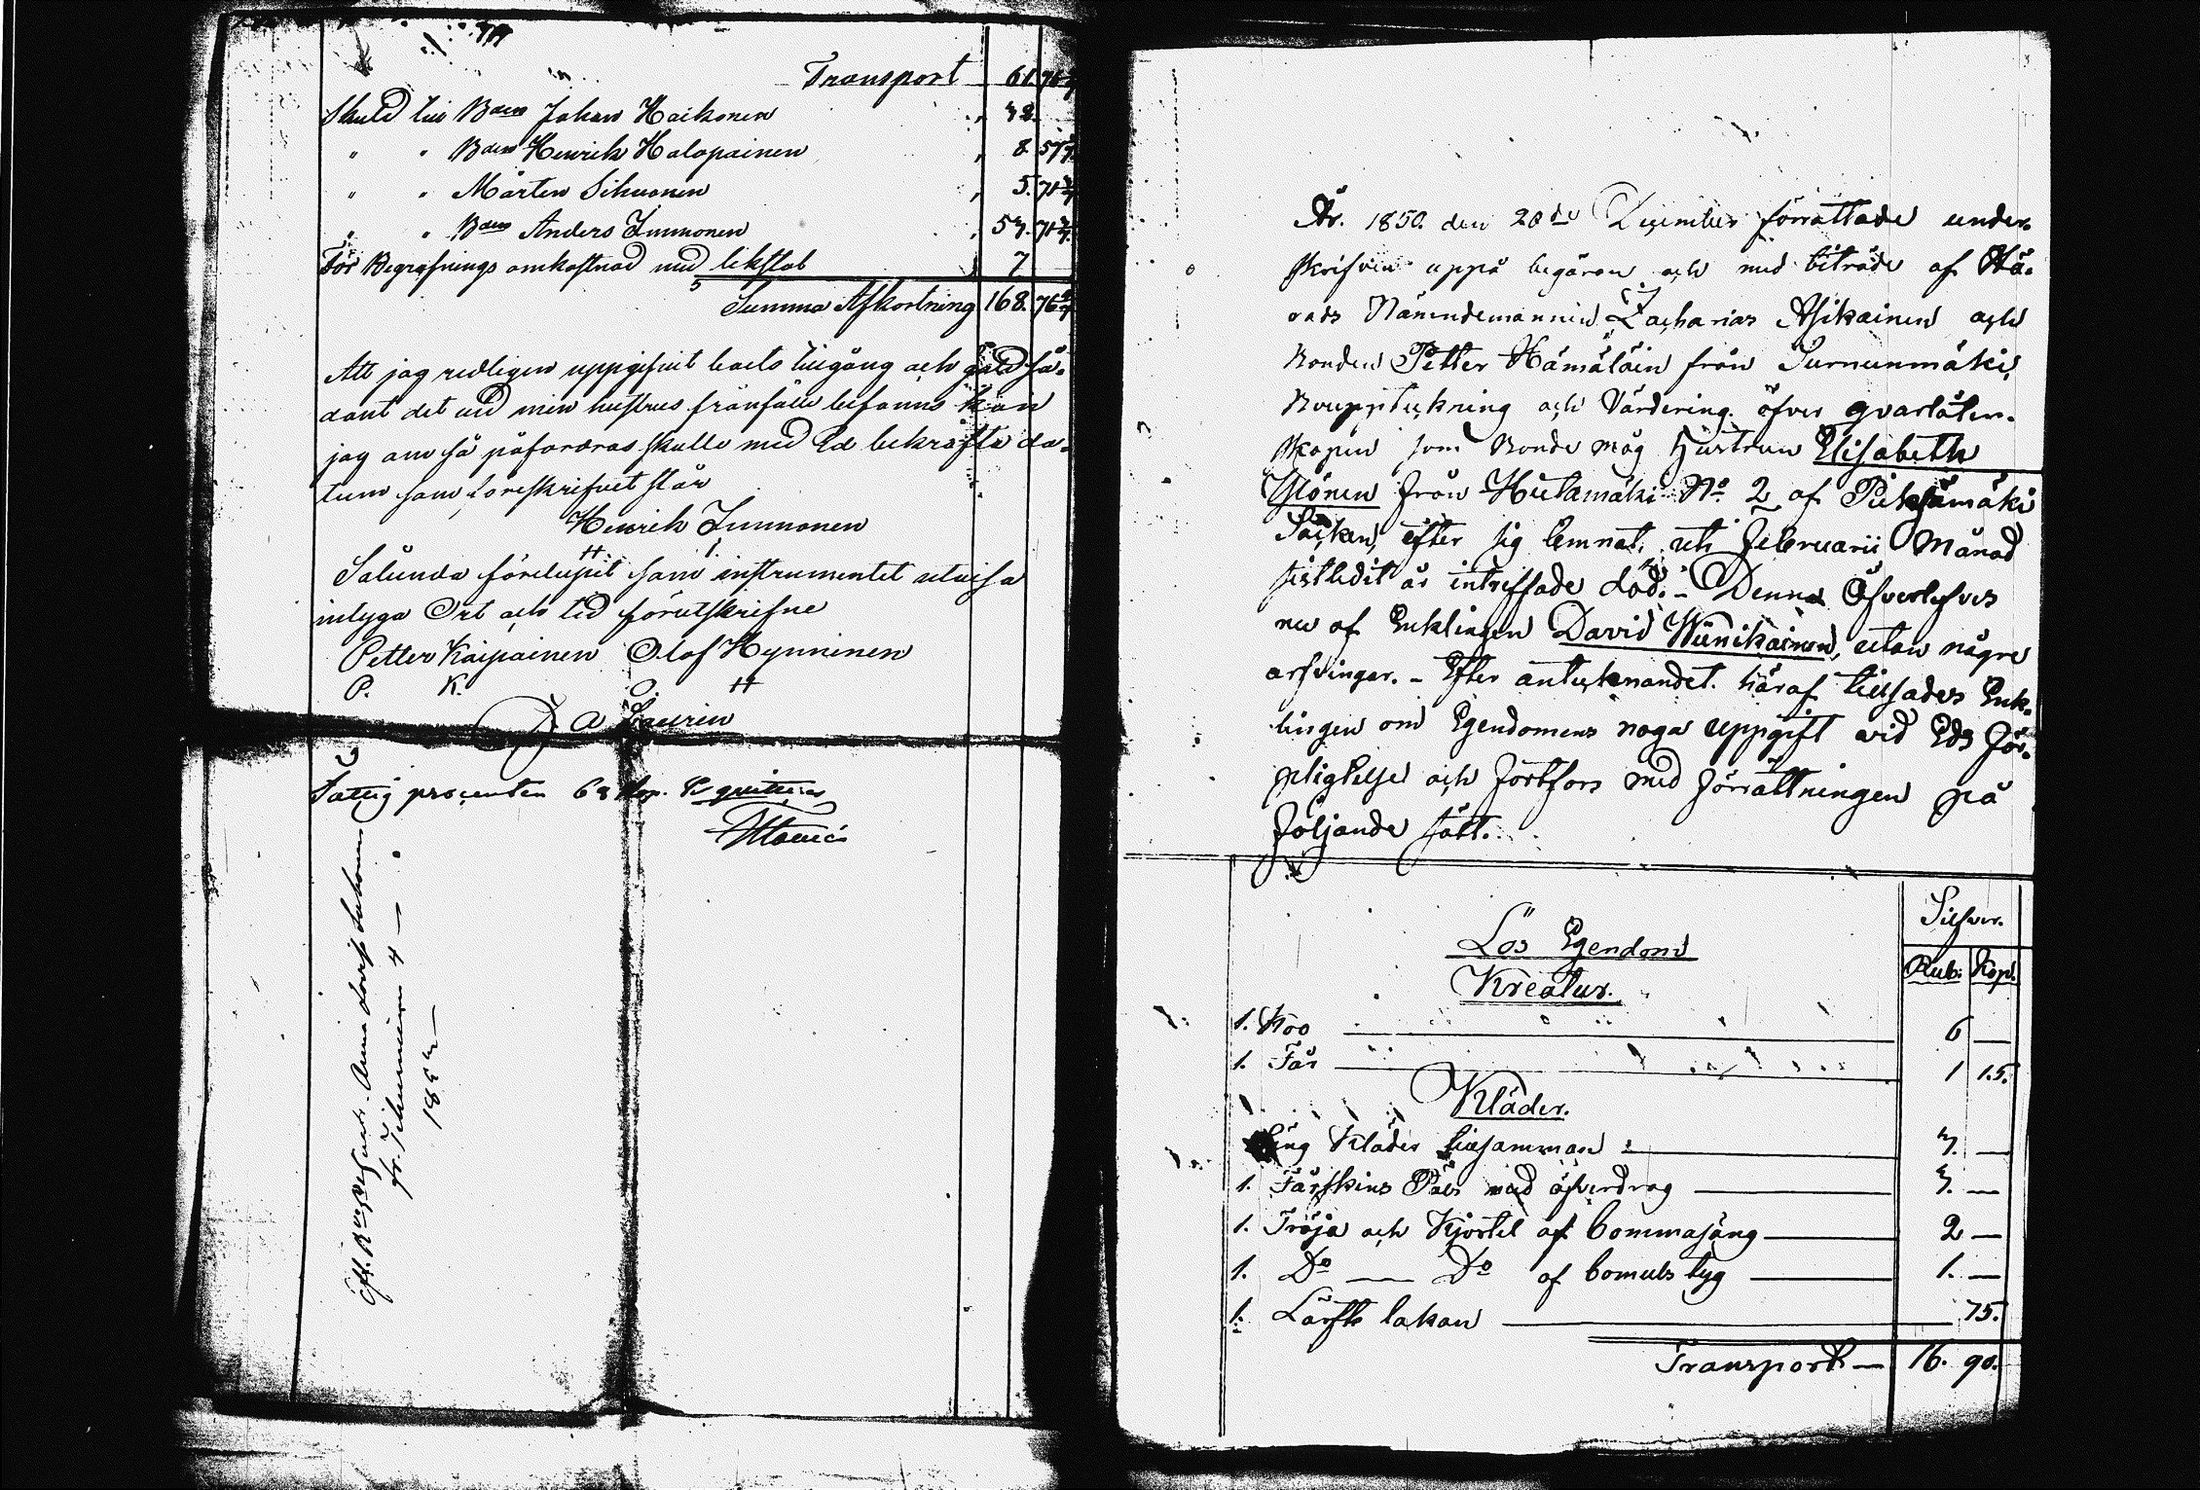 Transport 61. 76
Skuld till Bden Johan Haikonen 
" " Bden Henrik Halopainen 8. 57
" " Mårten Sihvonen 5. 71 3/7
" " Bden Anders Immonen 57. 71 3/7
För Begrafnings omkostnad med likstol 7
Summa Afkortning 168. 76
Att jag redligen uppgifvit boets tillgång och gäld så-
dant det vid min hustrus frånfälle befanns kan
jag om så påfordras skulle med Ed bekräfta da-
tum som föreskrifvet står
Henrik Immonen
Sålunda förelupit som instrumentet utvisa
intyga Ort och tid förutskrifne
Petter Kaipainen Olof Hynninen
P. K. O. H
D A Laurin
Fattig procenten 63 Kop. Sr quitteras
Eft. Bde Hust. Anna
fr. 4
185
År. 1850. den 28de December förrättade under-
skrifven uppå begäran och med biträde af Hä-
rads Nämndemannen Zacharias Asikainen och
Bonden Petter Hämäläin från Surnunmäki,
Bouppteckning och Värdering öfver qvarlåten-
skapen som Bonde måg Hustrun Elisabeth
Ylönen från Hietamäki No 2 af Pieksämäki
Socken, efter sig lemnat, uti Februarii Månad
sistledit år inträffade död. - Denna Öfverlefves
nu af Enklingen David Wänikainen, utan några
arfvingar. - Efter antecknandet häraf tillsades Enk-
lingen om Egendomens noga uppgift vid Eds För-
pligtelse och fortfors med förrättningen på
följande sätt.
Silfver.
Lös Egendom
Rub: Kop.
Kreatur.
1. Koo 6 —
1. Får 1 15.
Kläder.
Gång Kläder tillsamman 3. —
1. Fårskins Päls med öfverdrag 3. —
1. Tröja och Kjortel af bommasäng 2 —
1. Do — Do af bomuls tyg 1. —
1. Lärfts lakan 75.
Transport — 16. 90.